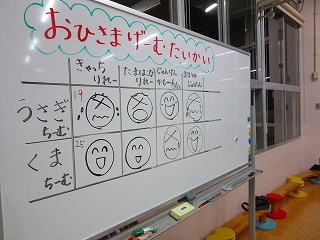 おひさまげーむたいかい
きゃっち
りれー
たまはこび
りれー
じゃんけん
じゃんけん
うさぎ
ちーむ
19
くま
ちーむ
25